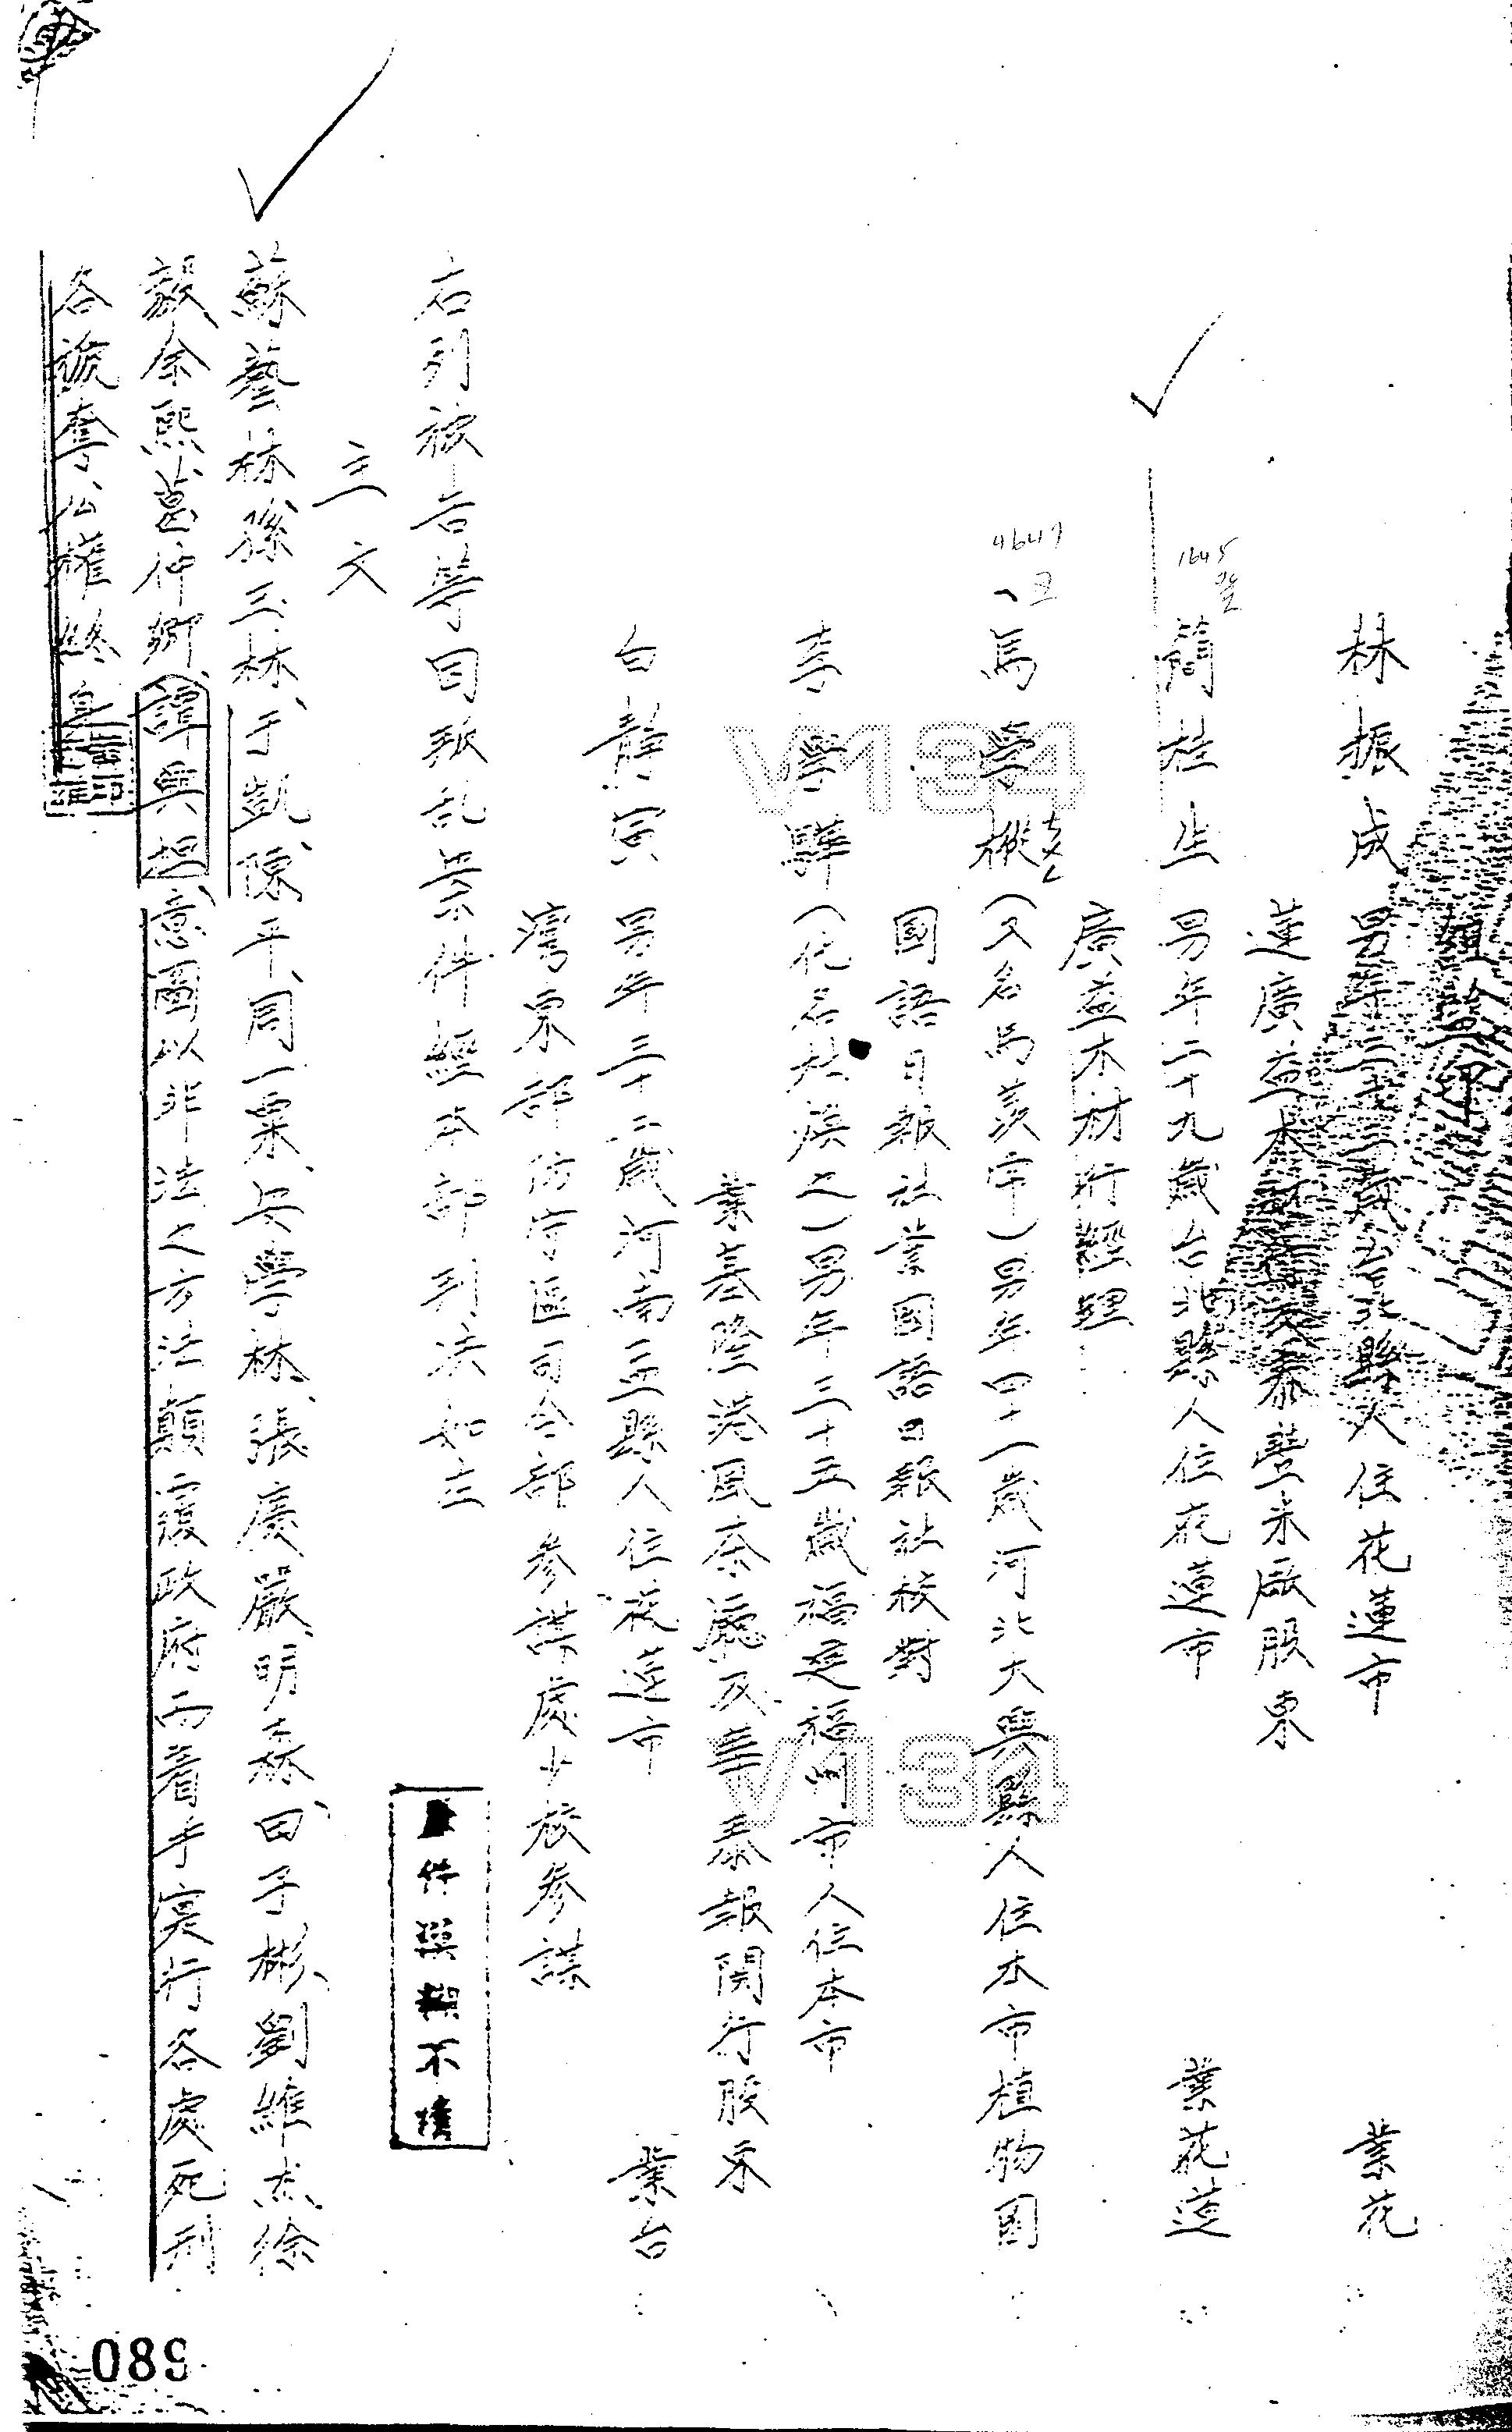 林振成 男年三十三歲台北縣人住花蓮市 業花
蓮廣益木材行及泰豐米廠股東
1645
簡桂生 男年二十九歲台北縣人住花蓮市 業花蓮
廣益木材行經理
4647
馬學樅(又名馬羨宇)男年四十一歲河北大興縣人住本市植物園
國語日報社業國語日報社校對
李學驊(化名林  之)男年三十五歲福建福州市人住本市
業基隆港風泰 及華泰報関行股東
白靜寅 男年三十二歲河南 縣人住花蓮市 業台
灣東部防守區司令部參謀處少校參謀
右列被告等因叛乱案件經本部判決如主
文件模糊不清
主文
蘇藝林、孫玉林、于凱、陳平、周一粟、安學林、張慶、嚴明森、田子彬、劉維杰、徐
毅、余熙、葛仲卿、譚興坦、意圖以非法之方法顛覆政府而着手實行各處死刑
各褫奪公權終身
V134
V134
089